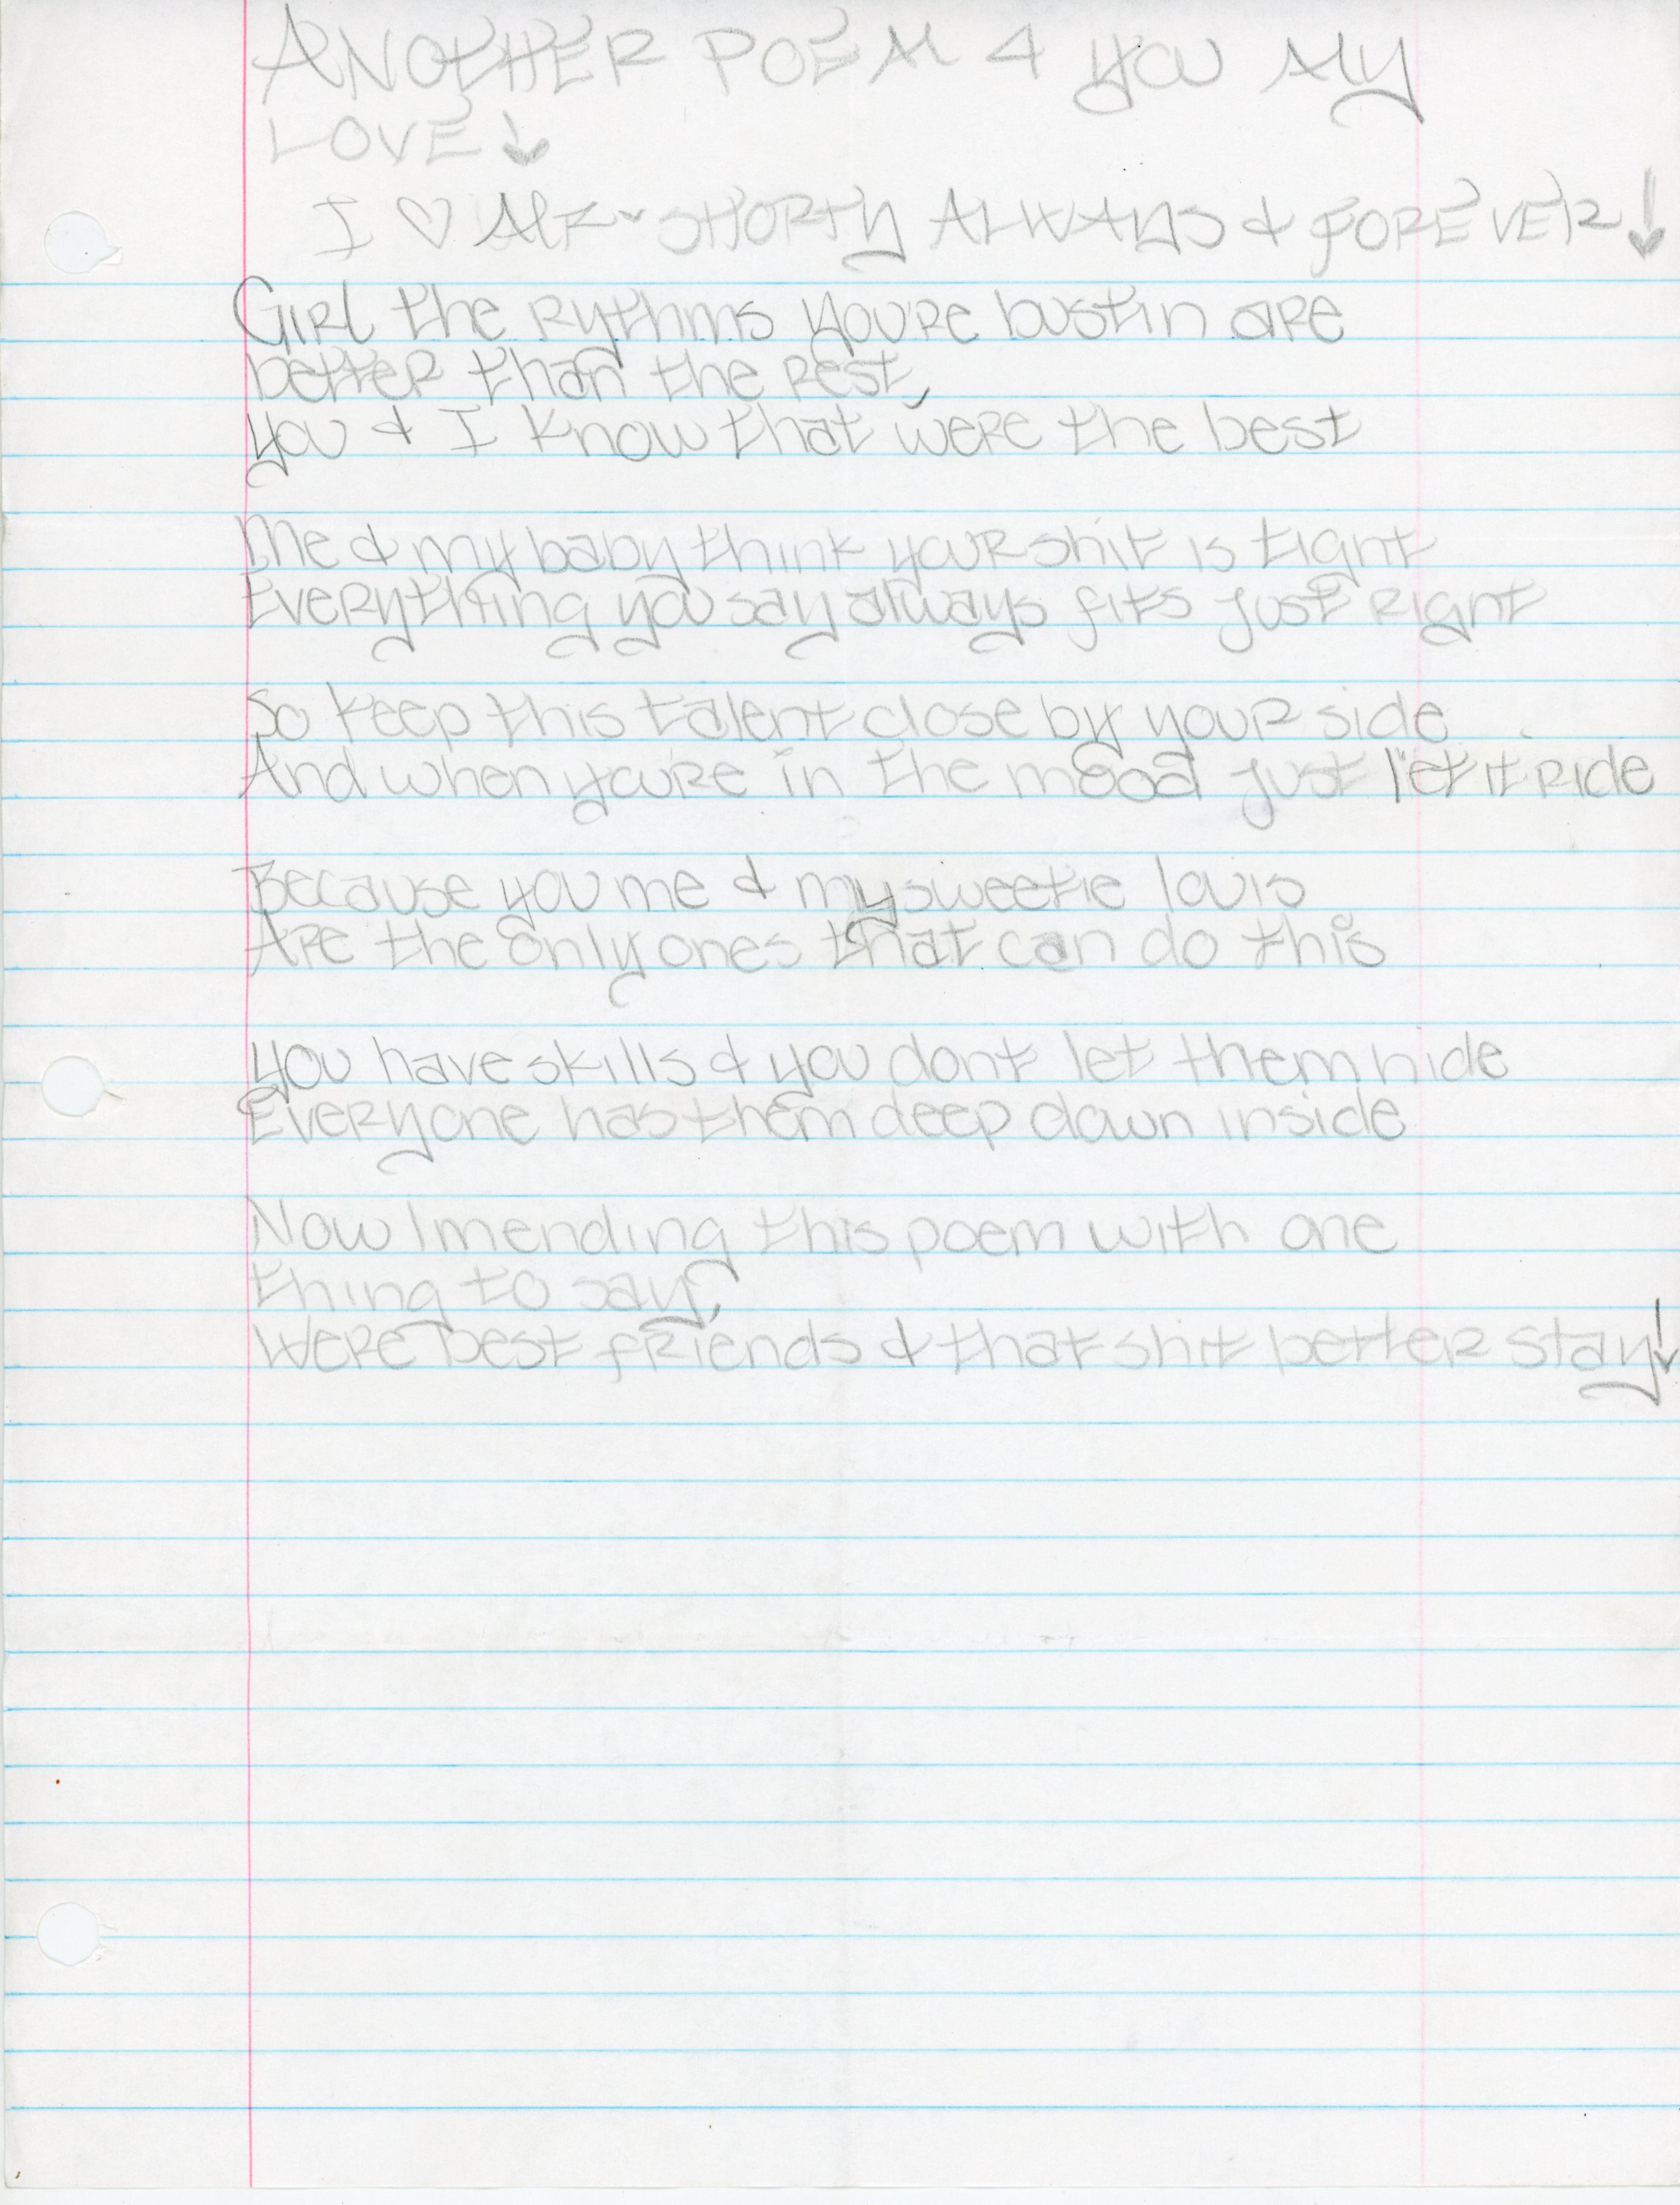 ANOTHER POEM 4 you My
LOVE ↓
I ♡ SHORTY ALWAYS & FOREVER!
Girl the rythms you're bustin are
better than the rest,
you & I know that were the best
Me & my baby think your shit is tight
Everything you say always fits just right
So keep this talent close by your side
And when you're in the mood just let it ride
Because you me & my sweetie louis
Are the only ones that can do this
you have skills & you dont let them hide
Everyone has them deep down inside
Now Im ending this poem with one
thing to say,
Were best friends & that shit better stay!